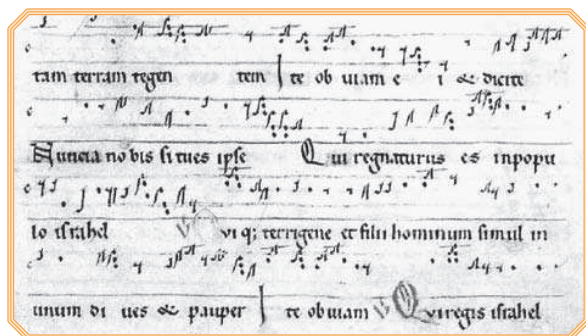 tam terram tegen tem | te ob uiam e i & dicite
Nuncia nobis si tues ipse Qui regnaturus es inpopu
lo israhel V Qui q; terrigene et filii hominum simul in
unum di ues & pauper | te ob uiam V Qui regis israhel